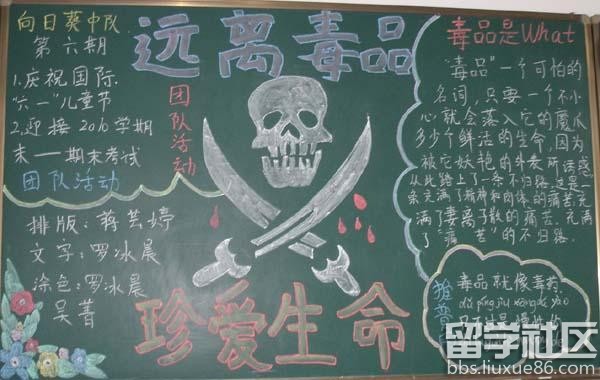 向日葵中队
第六期
1.庆祝国际
“六一”儿童节
2.迎接2010学期
末——期末考试
团队活动
排版:蒋芸婷
文字:罗冰晨
涂色:罗冰晨
吴菁
远离毒品
团队活动
珍爱生命
毒品是What
“毒品”一个可怕的
名词,只要一个不小
心就会落入它的魔爪
多少个鲜活的生命,因为
被它妖艳的外表所诱惑
从此踏上了一条不归路,这是一
条充满了精神和肉体的痛苦,充
满了妻离子散的痛苦.充满
了“痛苦”的不归路.
毒品就像毒药
留学社区
bbs.liuxue86.com